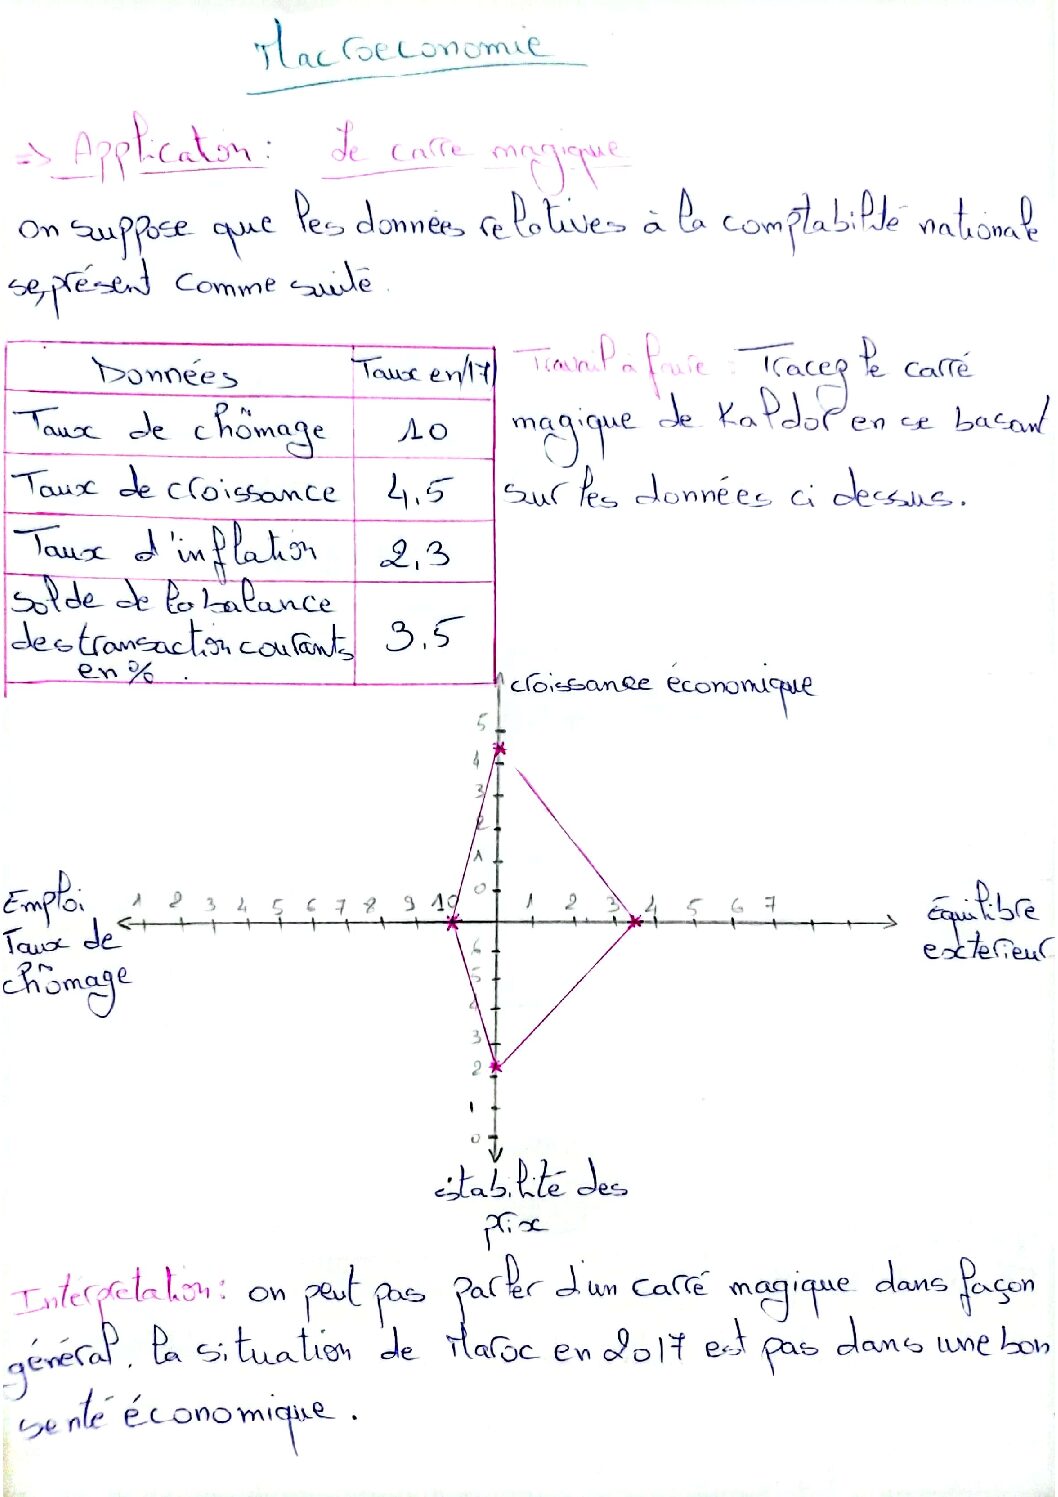 Macroeconomie
=> Application: Le carre magique
on suppose que les données relatives à la comptabilité nationale
se présent comme suite.
Données Taux en/17
Taux de chômage 10
Taux de croissance 4,5
Taux d'inflation 2,3
Solde de la balance
des transaction courants 3,5
en % .
Travail à faire : Tracez le carré
magique de Kaldor en se basant
sur les données ci dessus.
croissance économique
5
4
3
2
1
0
Emploi
Taux de
chômage
1 2 3 4 5 6 7 8 9 10
1 2 3 4 5 6 7
équilibre
exterieur
6
5
4
3
2
1
0
stabilité des
prix
Interpretation: on peut pas parler d'un carré magique dans façon
général. la situation de Maroc en 2017 est pas dans une bon
senté économique.